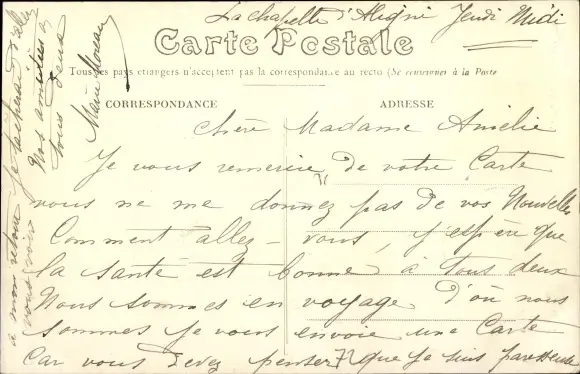 La chapelle d'Aligné Jeudi Midi
Carte Postale
Tous les pays étrangers n'acceptent pas la correspondance au recto (Se renseigner à la Poste
CORRESPONDANCE
ADRESSE
Chère Madame Amélie
Je vous remercie de votre Carte
vous ne me donnez pas de vos Nouvelles
Comment allez-vous, j'espère que
la santé est bonne à tous deux
Nous sommes en voyage d'où nous
sommes je vous envoie une Carte
Car vous devez penser que je suis paresseuse
à mon retour je tâcherai d'aller
vous voir
Nos amitiés à
tous deux
Marie Moreau